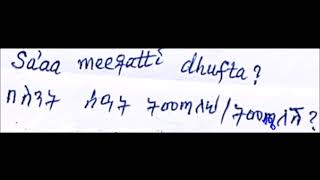 Sa'aa meeqatti dhufta?
በስንት ሰዓት ትመጣለህ/ትመጫለሽ?